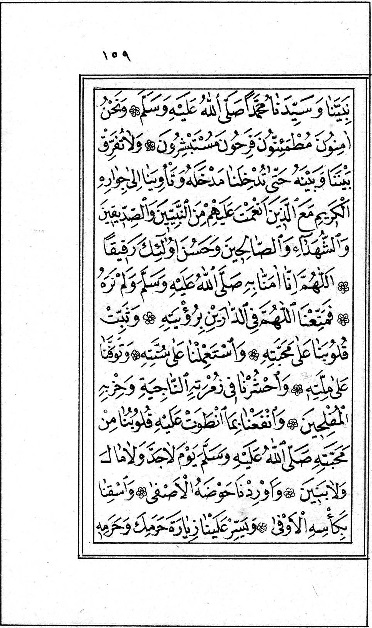 ١٥٩
نَبِيَّنَا وَسَيِّدَنَا مُحَمَّدًا صَلَّى اللهُ عَلَيْهِ وَسَلَّمَ ۞ وَنَحْنُ
اٰمِنُونَ مُطْمَئِنُّونَ فَرِحُونَ مُسْتَبْشِرُونَ ۞ وَلَا تُفَرِّقْ
بَيْنَنَا وَبَيْنَهُ حَتَّى تُدْخِلَنَا مَدْخَلَهُ وَتُأْوِيَنَا إِلَى جِوَارِهِ
الْكَرِيمِ مَعَ الَّذِينَ أَنْعَمْتَ عَلَيْهِمْ مِنَ النَّبِيِّينَ وَالصِّدِّيقِينَ
وَالشُّهَدَاءِ وَالصَّالِحِينَ وَحَسُنَ أُولٰئِكَ رَفِيقًا
۞ اَللّٰهُمَّ إِنَّا اٰمَنَّا بِهِ صَلَّى اللهُ عَلَيْهِ وَسَلَّمَ وَلَمْ نَرَهُ
۞ فَمَتِّعْنَا اللّٰهُمَّ فِي الدَّارَيْنِ بِرُؤْيَتِهِ ۞ وَثَبِّتْ
قُلُوبَنَا عَلَى مَحَبَّتِهِ ۞ وَاسْتَعْمِلْنَا عَلَى سُنَّتِهِ ۞ وَتَوَفَّنَا
عَلَى مِلَّتِهِ ۞ وَاحْشُرْنَا فِي زُمْرَتِهِ النَّاجِيَةِ وَحِزْبِهِ
الْمُفْلِحِينَ ۞ وَانْفَعْنَا بِمَا انْطَوَتْ عَلَيْهِ قُلُوبُنَا مِنْ
مَحَبَّتِهِ صَلَّى اللهُ عَلَيْهِ وَسَلَّمَ يَوْمَ لَا جَدَّ وَلَا مَالَ
وَلَا بَنِينَ ۞ وَأَوْرِدْنَا حَوْضَهُ الْأَصْفَى ۞ وَاسْقِنَا
بِكَأْسِهِ الْأَوْفَى ۞ وَيَسِّرْ عَلَيْنَا زِيَارَةَ حَرَمِكَ وَحَرَمِهِ